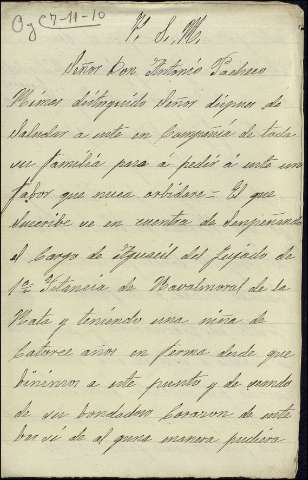 7-11-10
V. S. M.
Señor Don Antonio Pacheco
Mi mas distinguido Señor dispues de
Saludar a uste en Compañia de toda
su familia paso á pedir á uste un
fabor que nuca orbidare = El que
suscribe se en cuentra de senpeñando
el Cargo de Aguacil del Jujado de
1ª Istancia de Navalmoral de la
Mata y teniendo una niña de
Catorce años en ferma desde que
binimos a este punto y de seando
de su bondadoso Corazon de uste
ber si de al guna manera pudiera